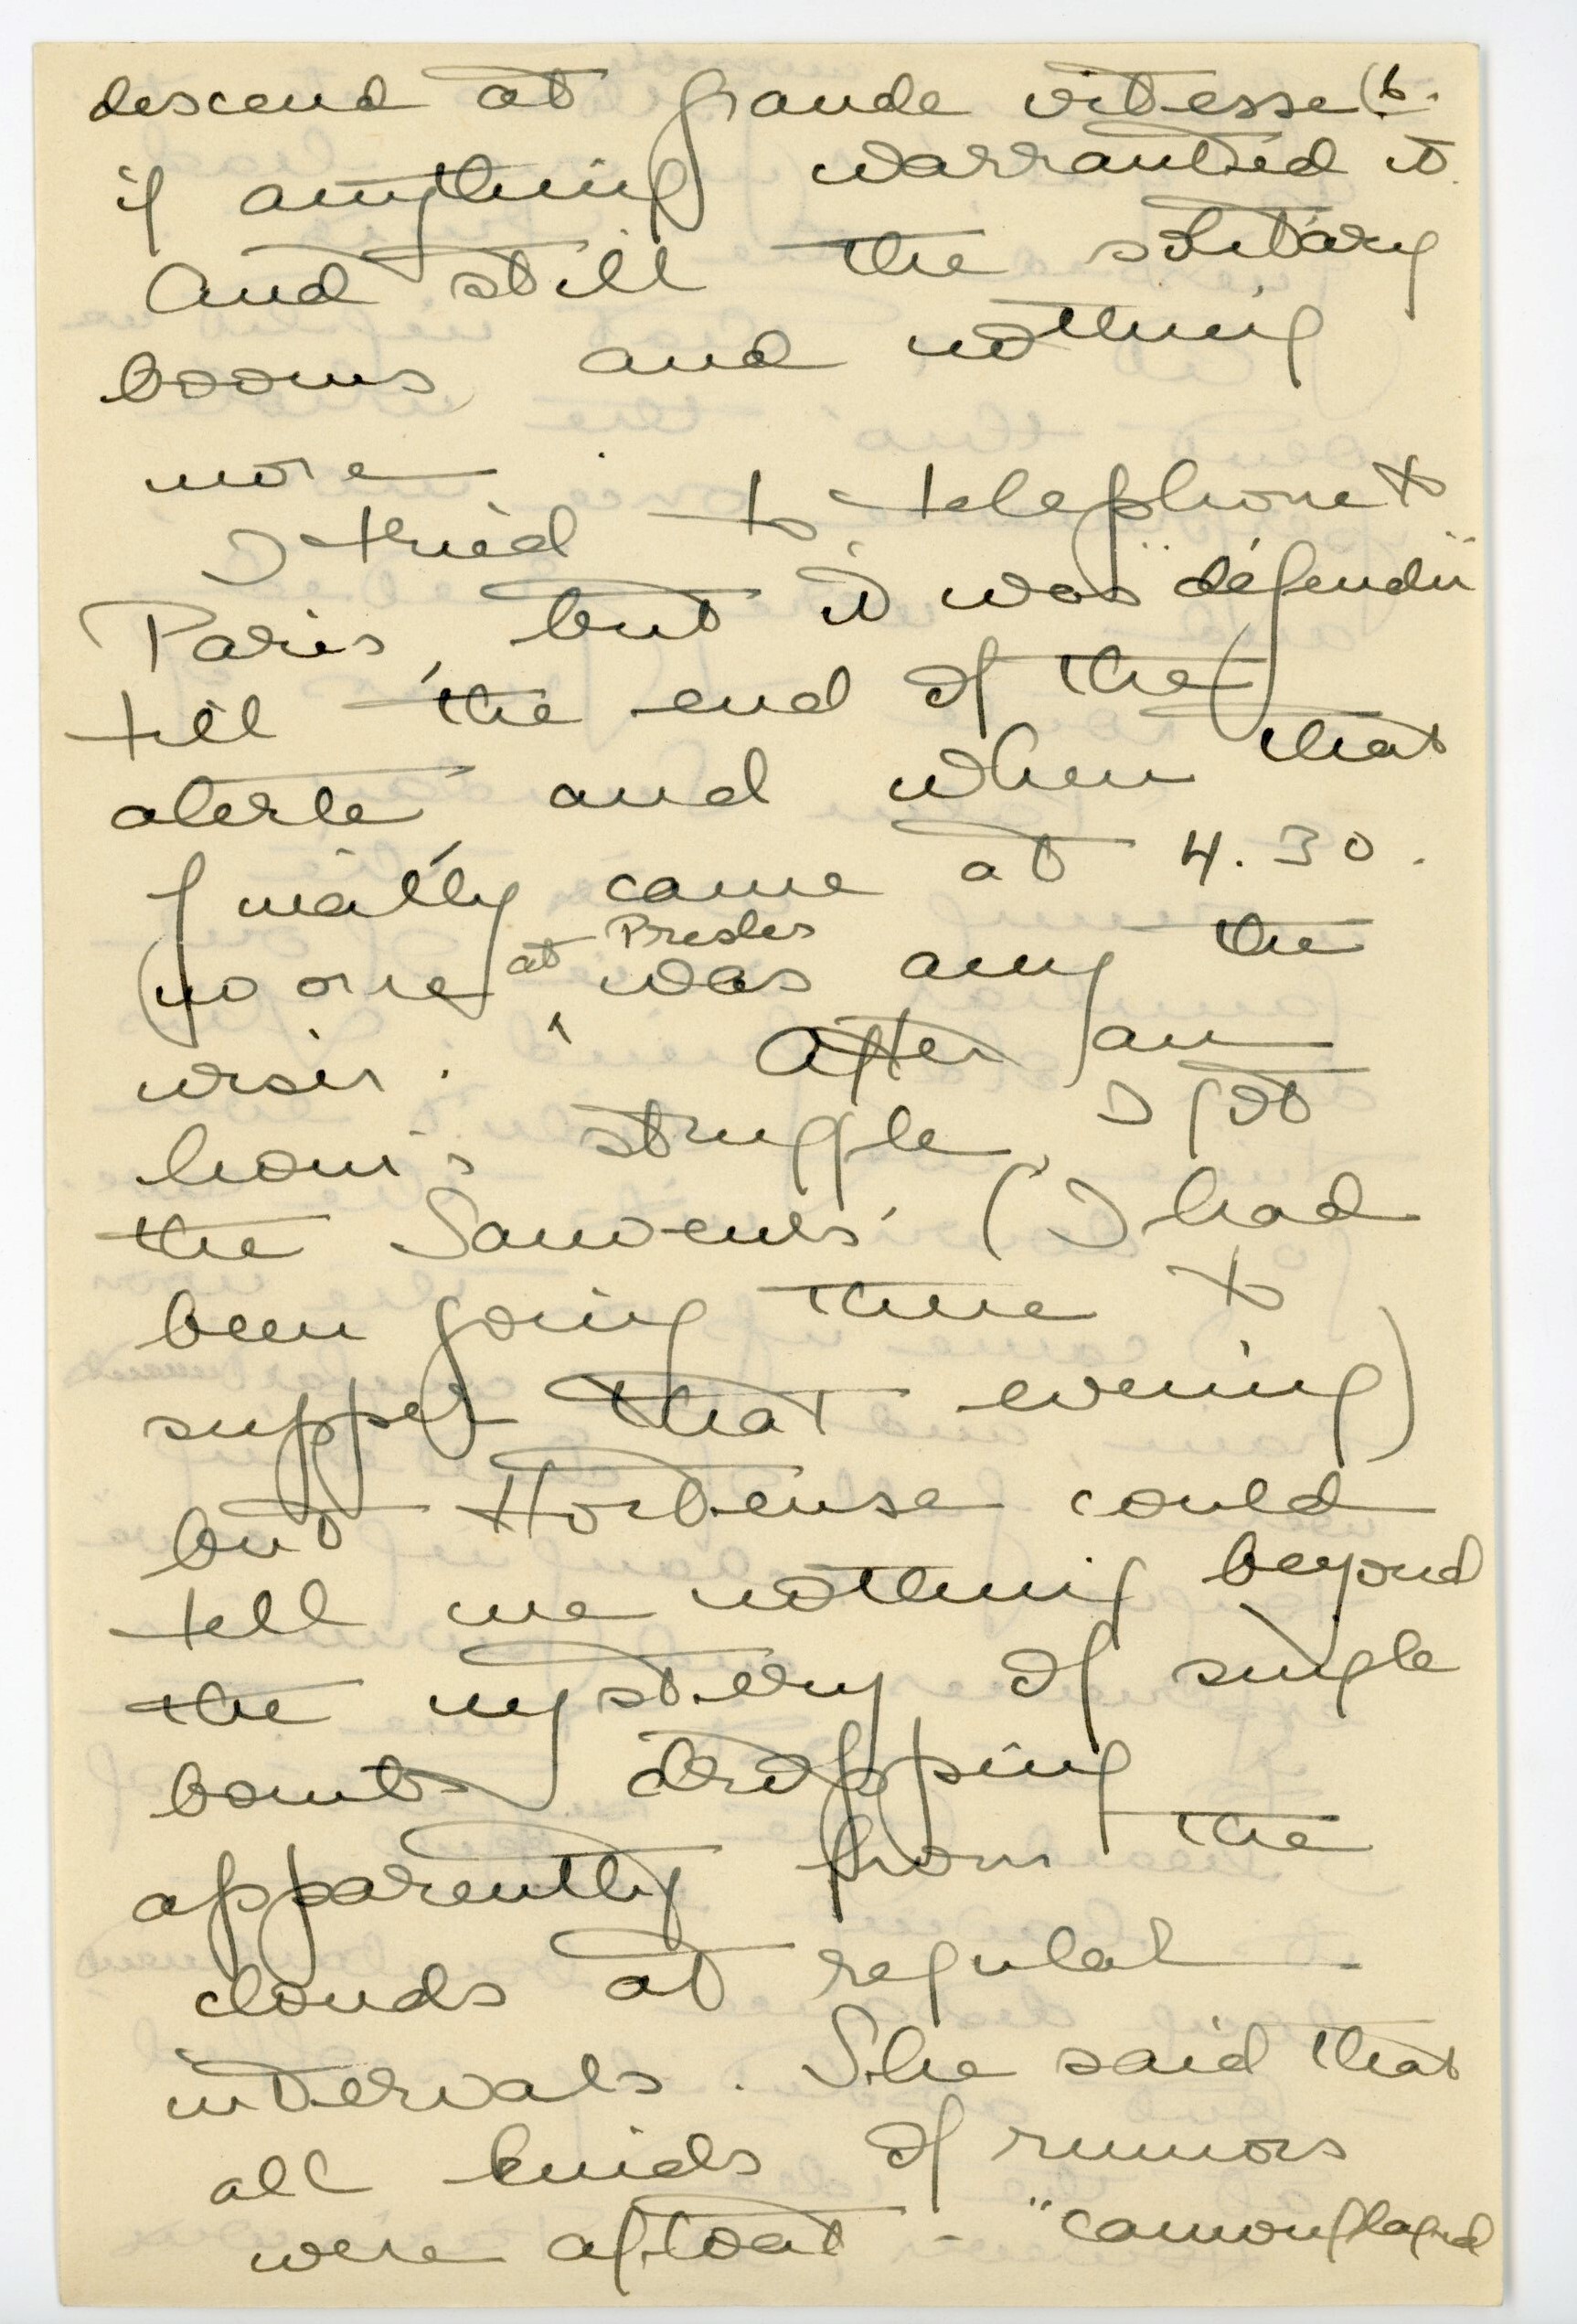 descend at grande vitesse 6.
if anything warranted it.
And still the solitary
booms and nothing
more.
I tried to telephone to
Paris, but it was "défendu"
till the end of the
alerte, and when that
finally came at 4.30.
(no one at Presles was any the
wiser. After an
hour's struggle, I got
the Sauvents' (I had
been going there to
supper that evening)
but Hortense could
tell me nothing beyond
the mystery of single
bombs dropping
apparently from the
clouds at regular
intervals. She said that
all kinds of rumors
were afloat - "camouflaged